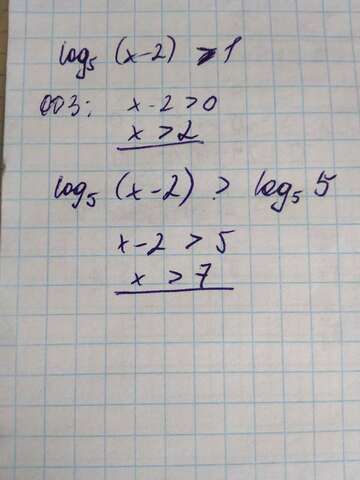 log₅ (x-2) > 1
ОДЗ: x-2>0
x>2
log₅ (x-2) > log₅ 5
x-2 > 5
x > 7